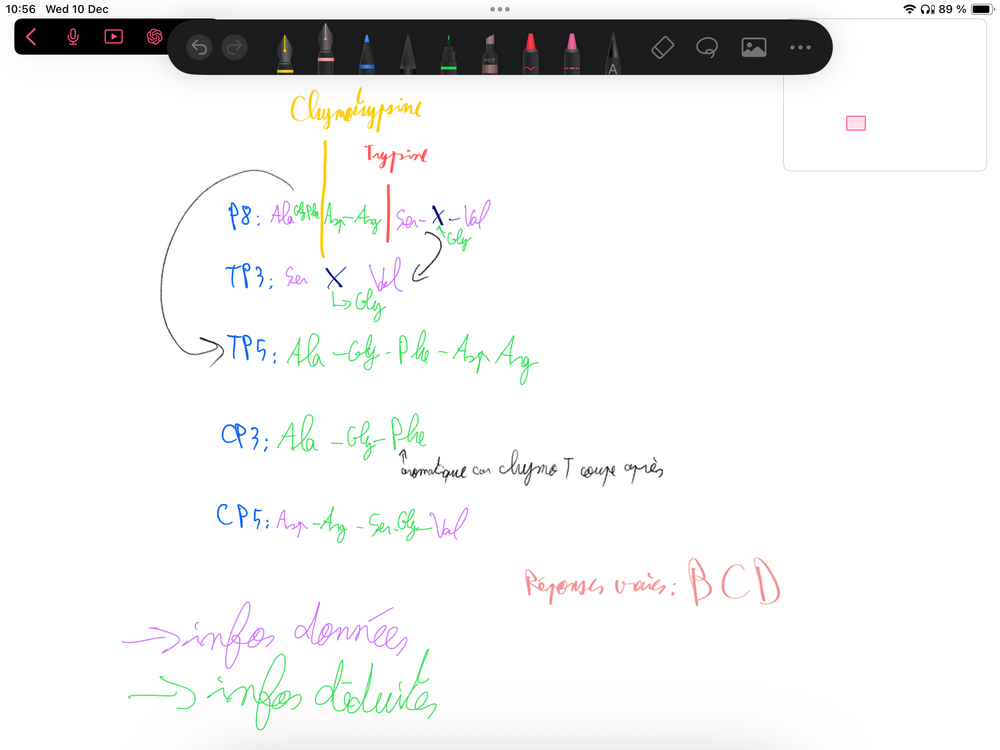 10:56 Wed 10 Dec
89 %
PDF
A
Chymotrypsine
Trypsine
P8: Ala Gly Phe Asp-Arg Ser-X-Val
Gly
TP3: Ser X Val
↳ Gly
TP5: Ala -Gly-Phe-Asp Arg
CP3: Ala -Gly-Phe
aromatique car chymo T coupe après
CP5: Asp-Arg-Ser-Gly-Val
Réponses vraies: B C D
→ infos données
→ infos déduites